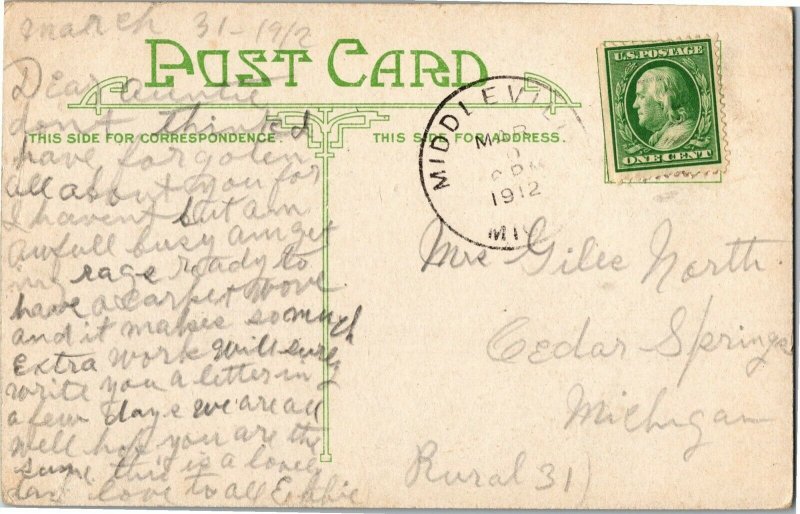 march 31-1912
POST CARD
THIS SIDE FOR CORRESPONDENCE
THIS SIDE FOR ADDRESS.
Dear Auntie
don't think I
have forgoten
all about you for
I havent but am
awfull busy am get
ing rags ready to
have a carpet wove
and it makes so much
Extra work will surly
write you a letter in
a few days we are all
well hop you are the
same this is a lovely
day love to all
MIDDLEVI
MAR
1912
MI
U.S. POSTAGE
ONE CENT
Mrs Giles North
Cedar Springs
Michigan
Rural 31)